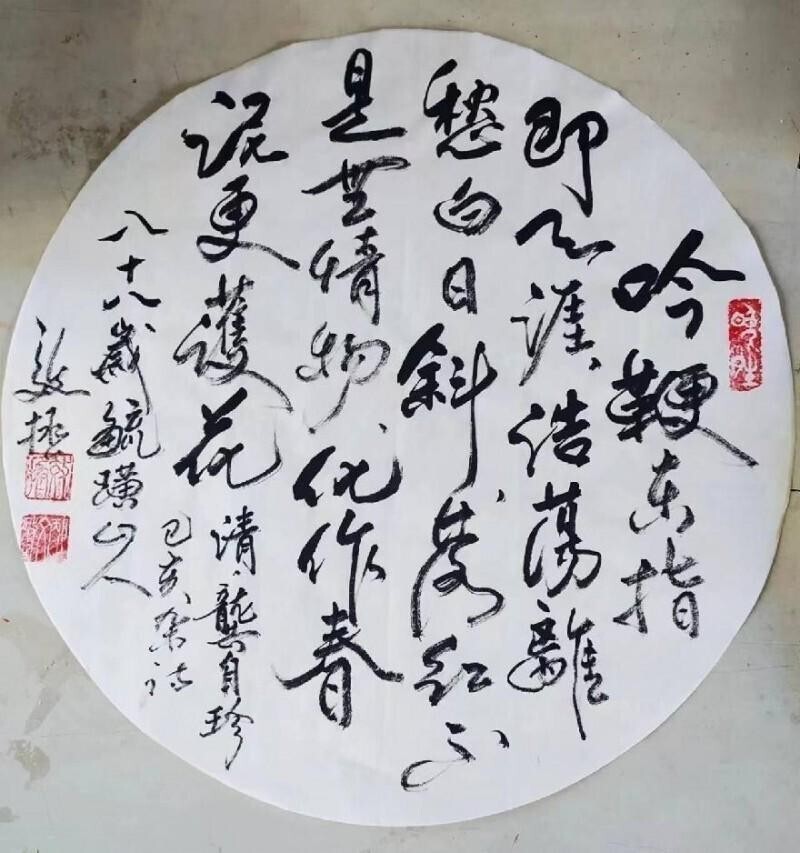 吟鞭东指
即天涯、浩蕩離
愁白日斜、落红不
是無情物、化作春
泥更護花
清、龔自珍
己亥杂诗
八十八歲毓璜山人